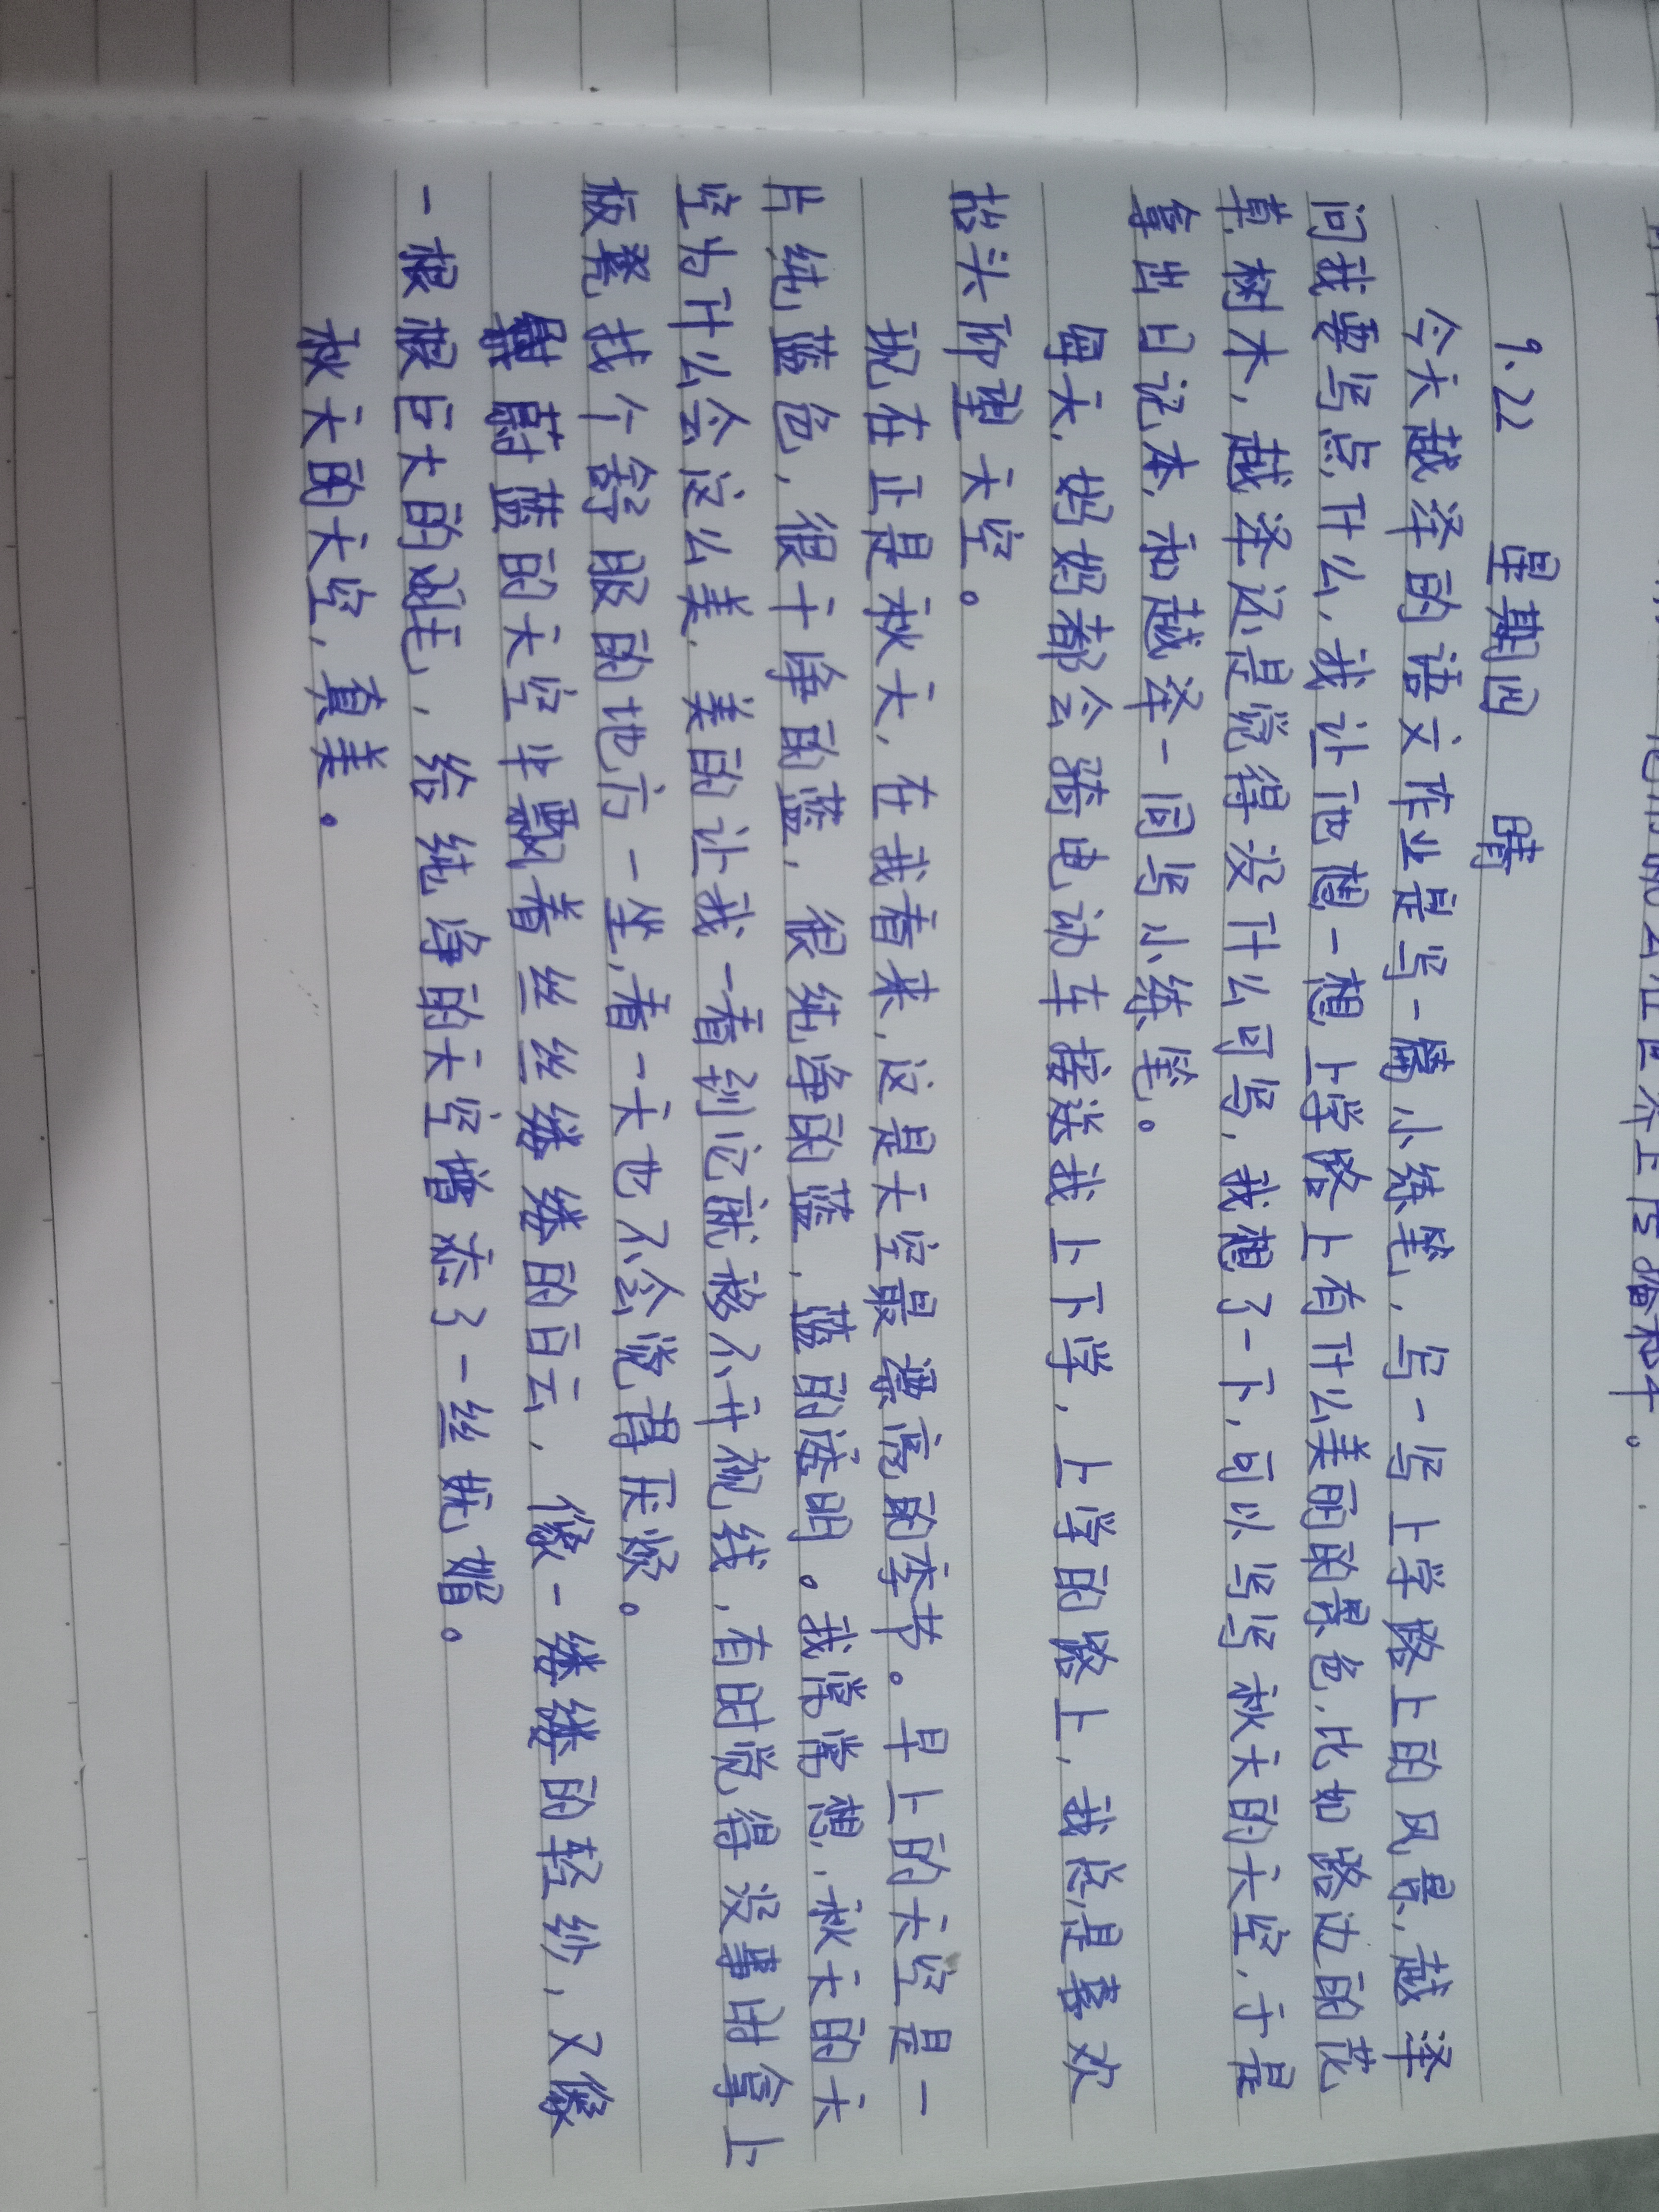 9.22 星期四 晴
今天越泽的语文作业是写一篇小练笔，写一写上学路上的风景，越泽
问我要写点什么，我让他想一想上学路上有什么美丽的景色，比如路边的花
草，树木，越泽还是觉得没什么可写，我想了一下，可以写写秋天的天空，于是
拿出日记本，和越泽一同写小练笔。
每天，妈妈都会骑电动车接送我上下学，上学的路上，我总是喜欢
抬头仰望天空。
现在正是秋天，在我看来，这是天空最漂亮的季节。早上的天空是一
片纯蓝色，很干净的蓝，很纯净的蓝，蓝的透明。我常常想，秋天的天
空为什么会这么美，美的让我一看到它就移不开视线，有时觉得没事时拿上
板凳找个舒服的地方一坐，看一天也不会觉得厌烦。
蔚蓝的天空半飘着丝丝缕缕的白云，像一缕缕的轻纱，又像
一根根巨大的羽毛，给纯净的天空增添了一丝妩媚。
秋天的天空，真美。